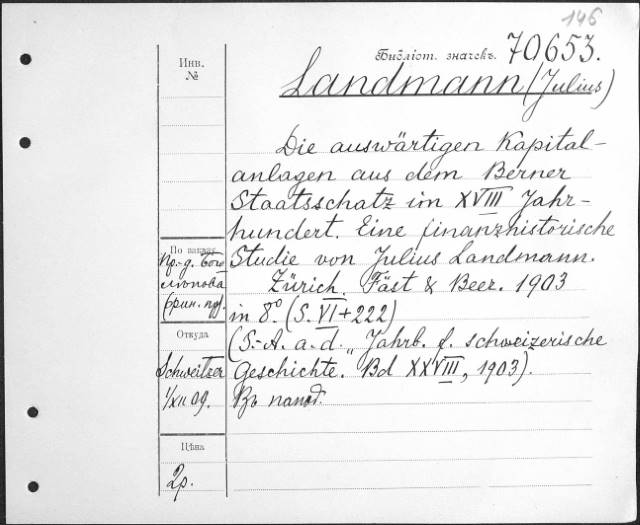 146
Библіот. значекъ. 70653.
Инв.
№
Landmann (Julius)
Die auswärtigen Kapital-
anlagen aus dem Berner
Staatsschatz im XVIII Jahr-
hundert. Eine finanzhistorische
Studie von Julius Landmann.
Zürich. Fäst & Beer. 1903
in 8º. (S. VI+222)
(S.-A. a. d. "Jahrb. f. schweizerische
Geschichte." Bd XXVIII, 1903).
Въ папкѣ.
По заказу
Пр.-д. Бого
лѣпова
Откуда
Schweitzer
1/XII 09.
Цѣна
2р.